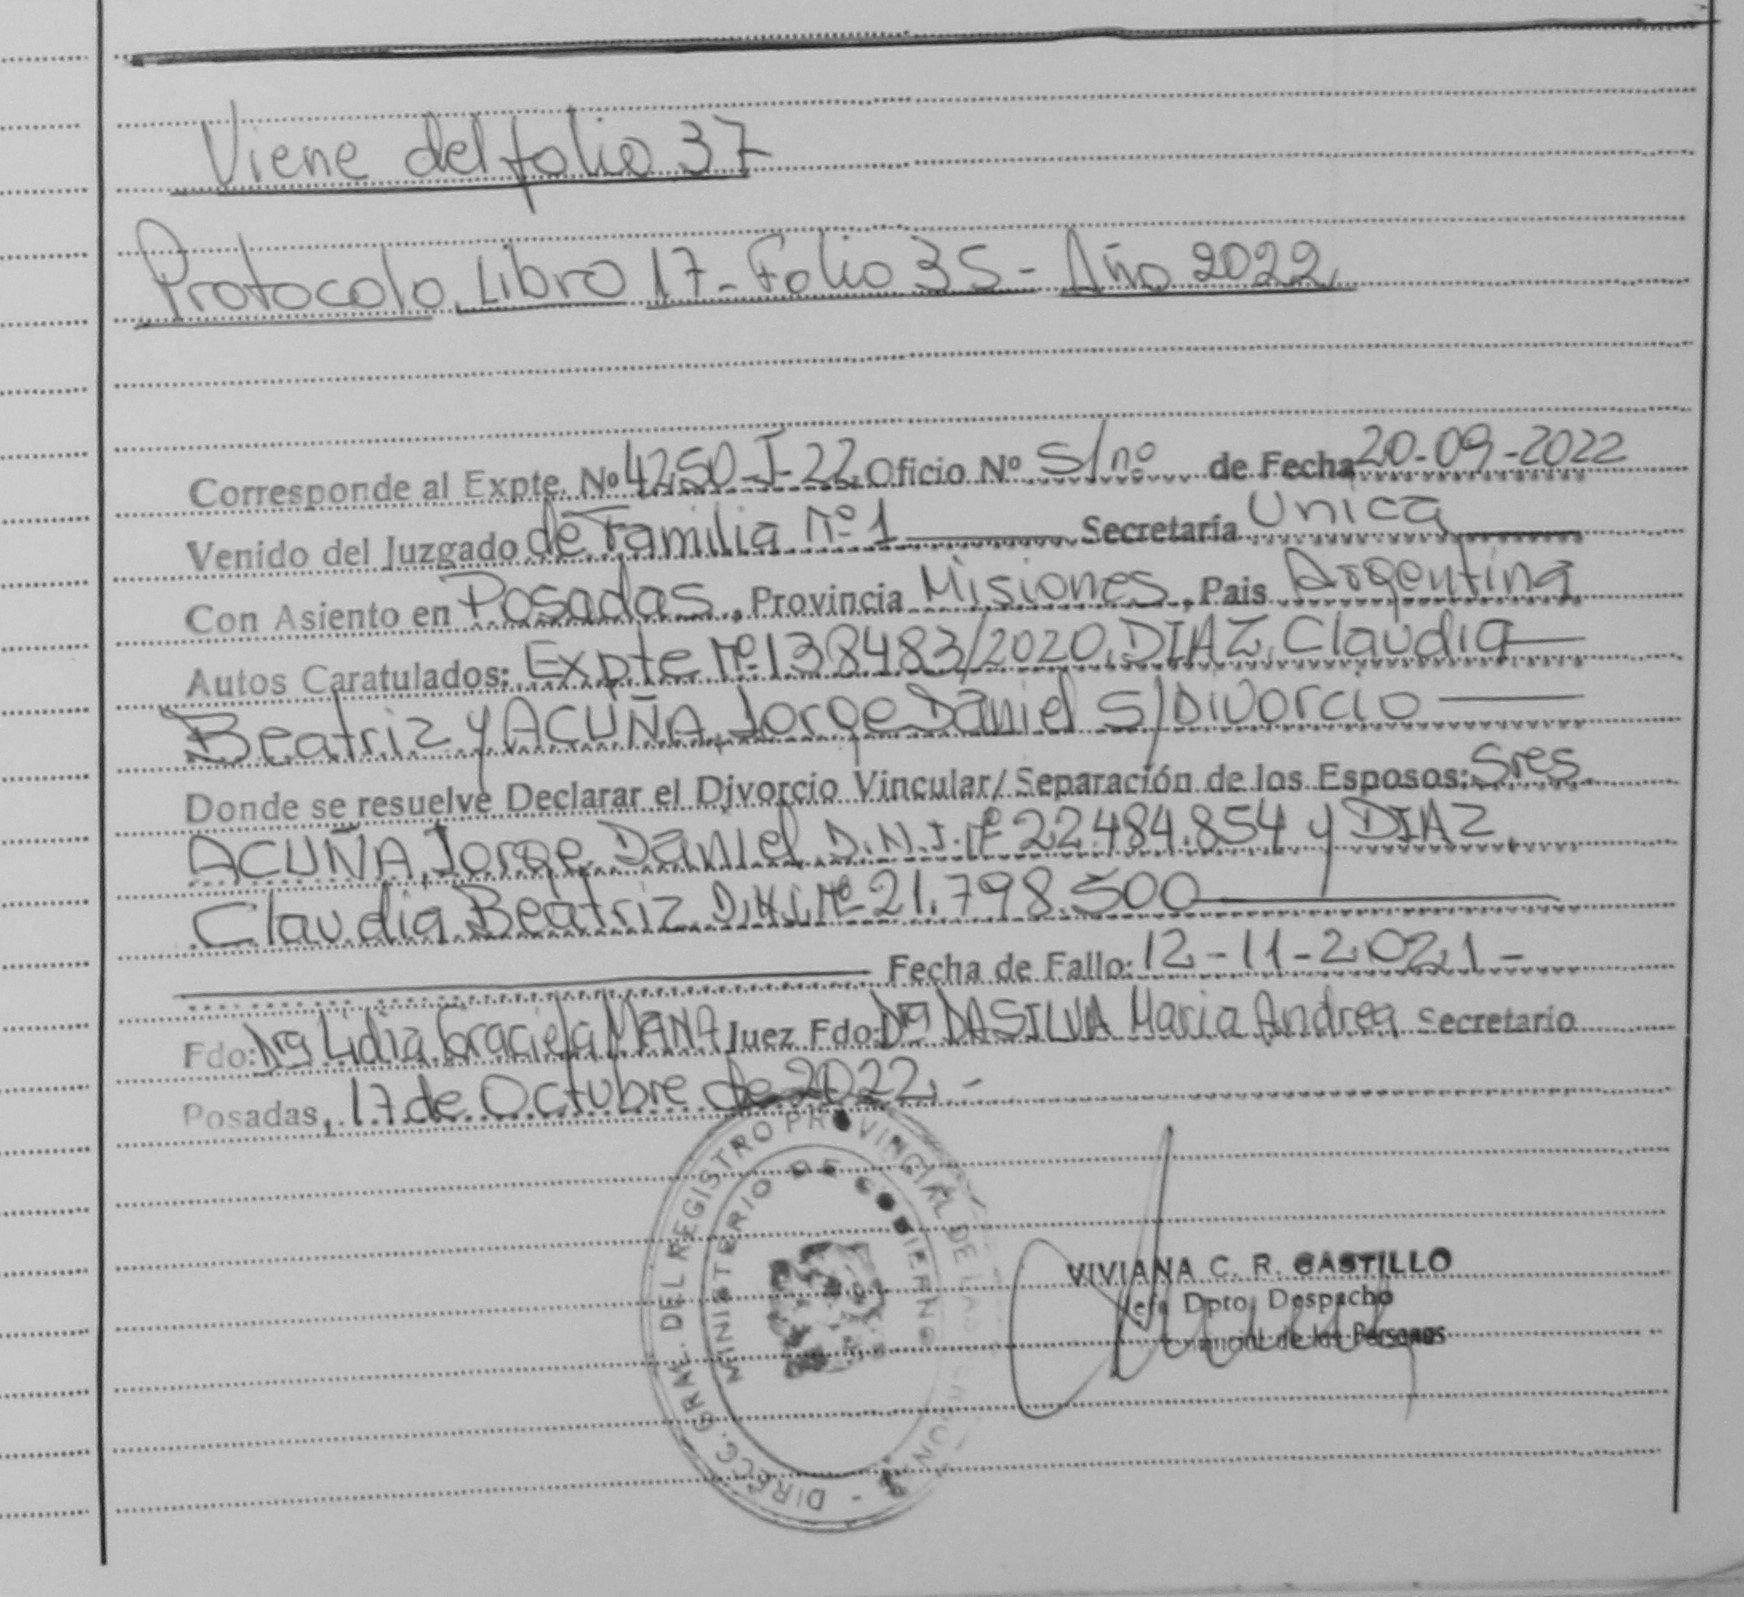 Viene del folio 37
Protocolo Libro 17 - Folio 35 - Año 2022.
Corresponde al Expte. Nº 4250-J-22 Oficio Nº S/nº de Fecha 20-09-2022
Venido del Juzgado de Familia Nº 1 Secretaría Unica
Con Asiento en Posadas, Provincia Misiones, Pais Argentina
Autos Caratulados: Expte Nº 138483/2020, DIAZ, Claudia
Beatriz y ACUÑA, Jorge Daniel S/Divorcio
Donde se resuelve Declarar el Divorcio Vincular/ Separación de los Esposos: Sres
ACUÑA, Jorge Daniel D.N.I. Nº 22.484.854 y DIAZ,
Claudia Beatriz D.N.I. Nº 21.798.500
Fecha de Fallo: 12-11-2021-
Fdo: Dra Lidia Graciela Juez Fdo: Dra DASILVA Maria Andrea Secretario
Posadas, 17 de Octubre de 2022.-
DIRECC. GRAL. DEL REGISTRO PROVINCIAL DE
MINISTERIO DE GOBIERNO
VIVIANA C. R. CASTILLO
Jefa Dpto. Despacho
de las Personas